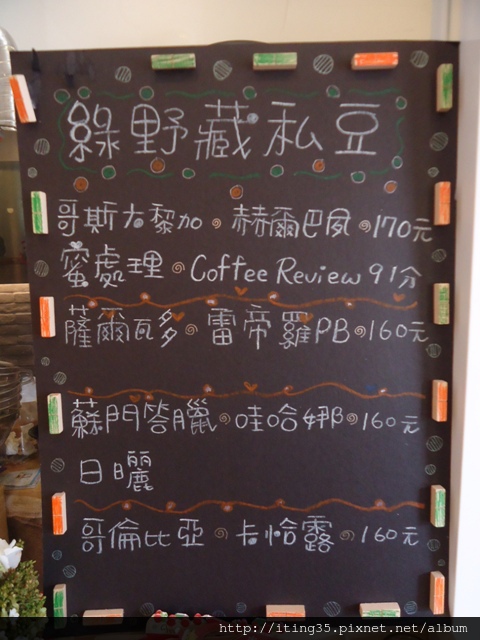 綠野藏私豆
哥斯大黎加 赫爾巴夙 170元
蜜處理 Coffee Review 91分
薩爾瓦多 雷帝羅PB 160元
蘇門答臘 哇哈娜 160元
日曬
哥倫比亞 卡恰露 160元
http://iting35.pixnet.net/album